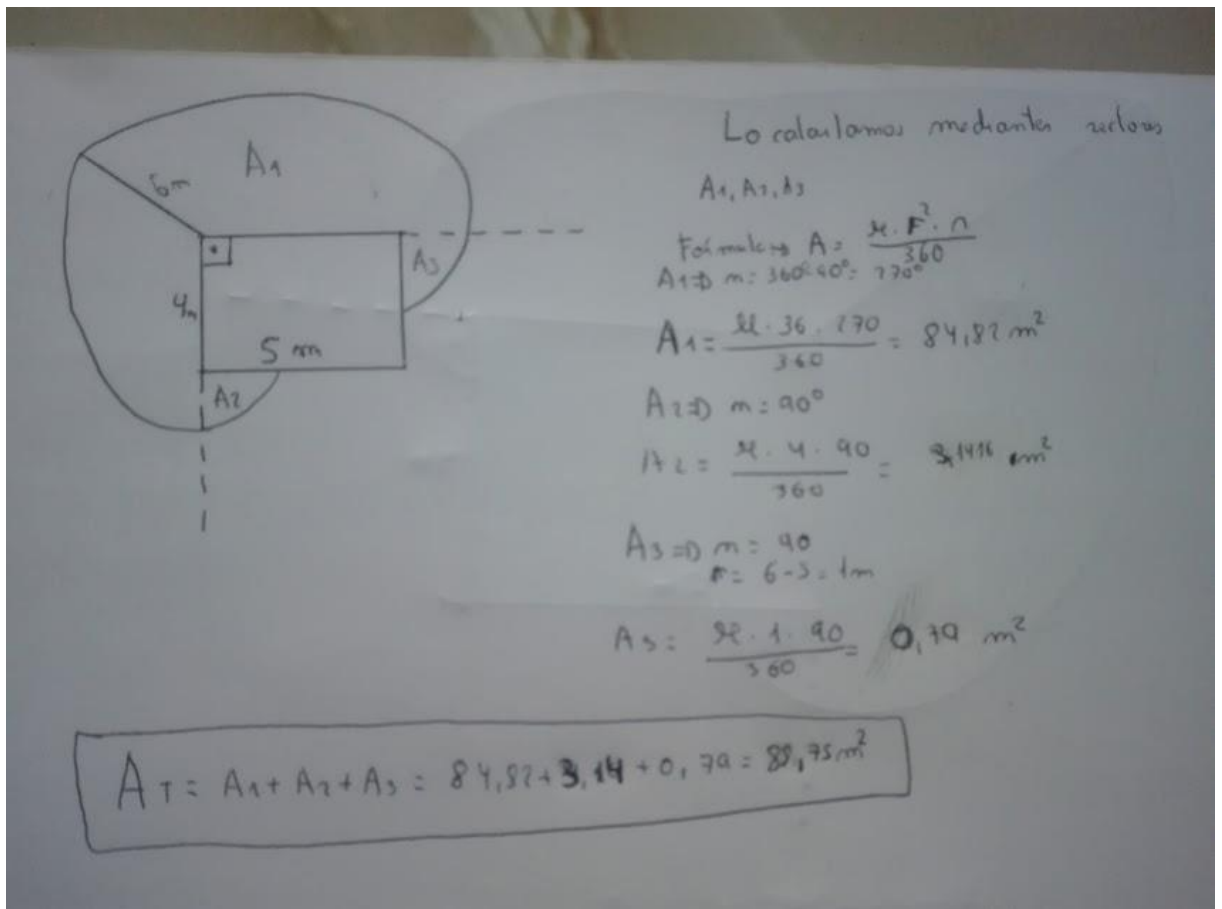 A1
6m
A3
4m
5 m
A2
Lo calculamos mediantes sectores
A1, A2, A3
Fórmula → A = π · r² · n / 360
A1 ⇒ n = 360 - 90° = 270°
A1 = π · 36 · 270 / 360 = 84,82 m²
A2 ⇒ n = 90°
A2 = π · 4 · 90 / 360 = 3,1416 m²
A3 ⇒ n = 90
r = 6 - 5 = 1m
A3 = π · 1 · 90 / 360 = 0,79 m²
AT = A1 + A2 + A3 = 84,82 + 3,14 + 0,79 = 88,75 m²